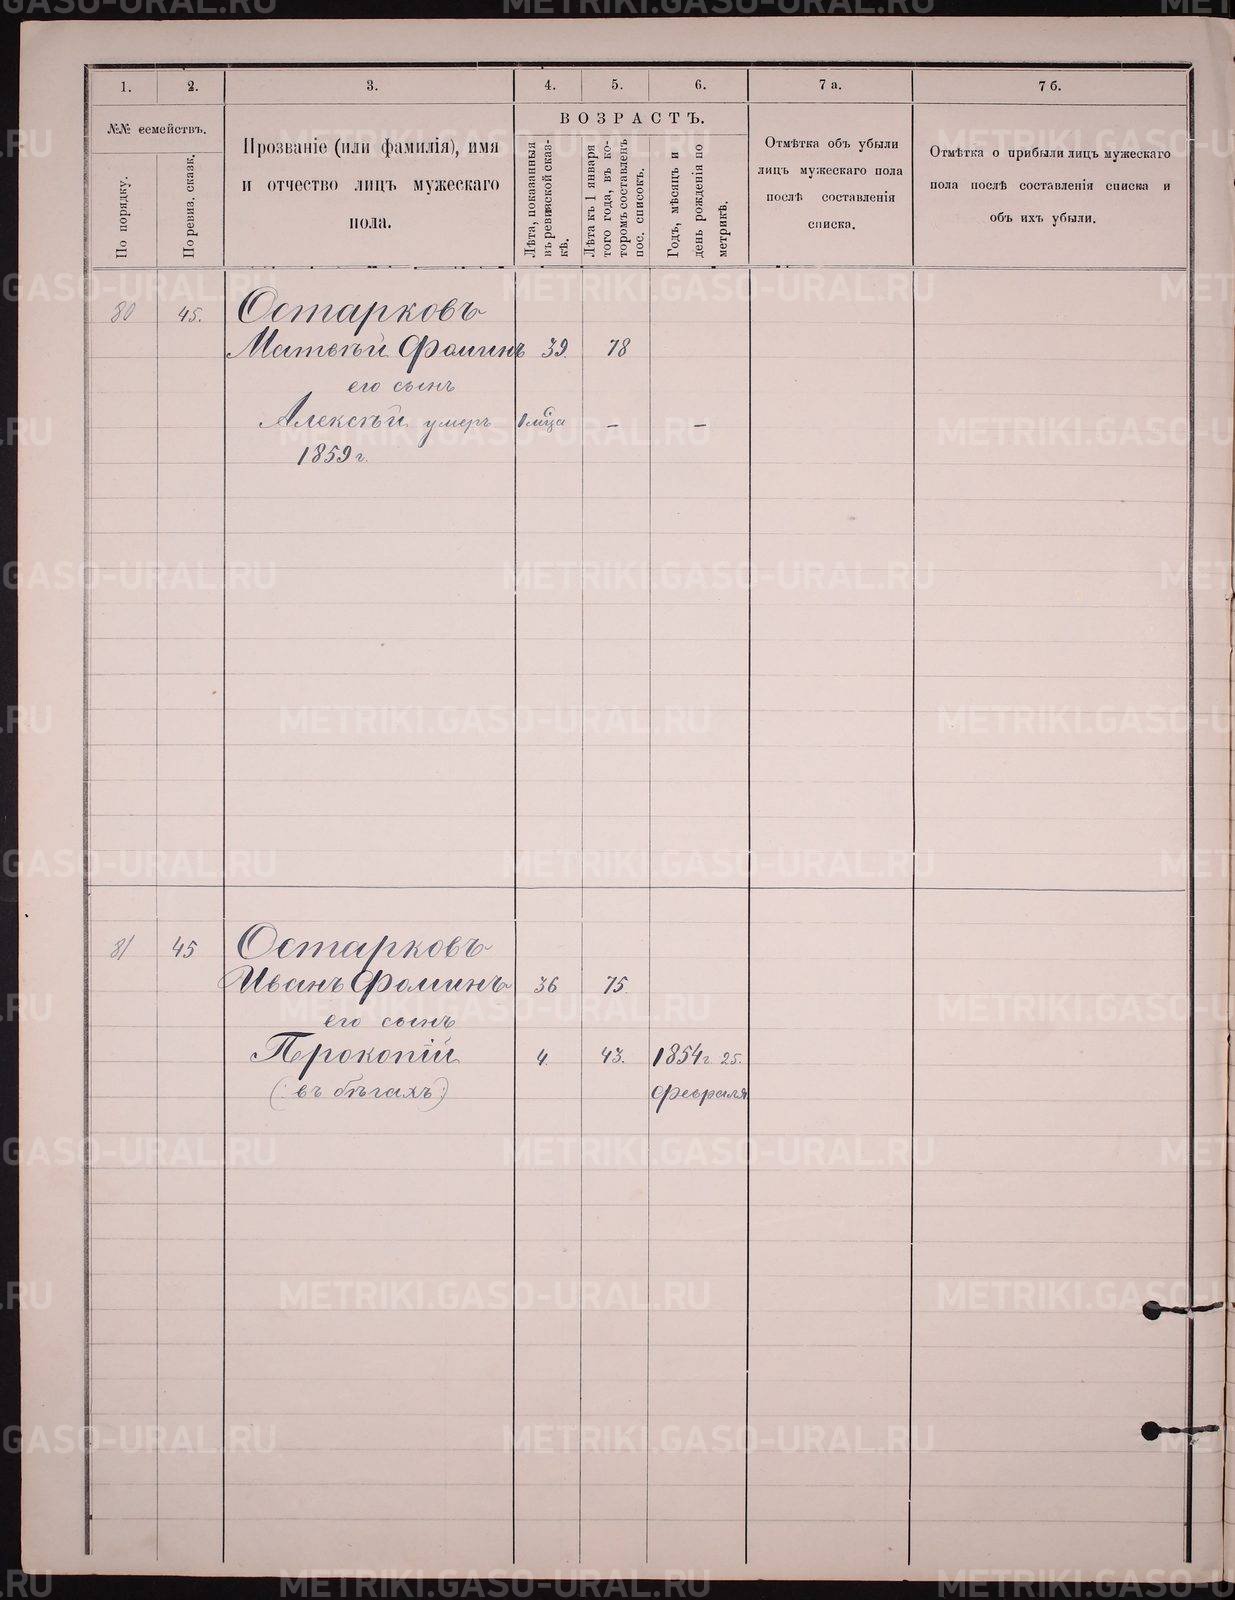 1.
2.
3.
4.
5.
6.
7 а.
7 б.
№№ семействъ.
По порядку.
По ревиз. сказк.
Прозваніе (или фамилія), имя
и отчество лицъ мужескаго
пола.
ВОЗРАСТЪ.
Лѣта, показанныя
въ ревизской сказ-
кѣ.
Лѣта къ 1 января
того года, въ ко-
торомъ составленъ
пос. списокъ.
Годъ, мѣсяцъ и
день рожденія по
метрикѣ.
Отмѣтка объ убыли
лицъ мужескаго пола
послѣ составленія
списка.
Отмѣтка о прибыли лицъ мужескаго
пола послѣ составленія списка и
объ ихъ убыли.
80 45. Остарковъ
Матвѣй Фоминъ 39. 78
его сынъ
Алексѣй умеръ 1 м͠ца — —
1859 г.
81 45 Остарковъ
Иванъ Фоминъ 36 75.
его сынъ
Прокопій 4. 43. 1854 г. 25.
(въ бѣгахъ) Февраля
METRIKI.GASO-URAL.RU